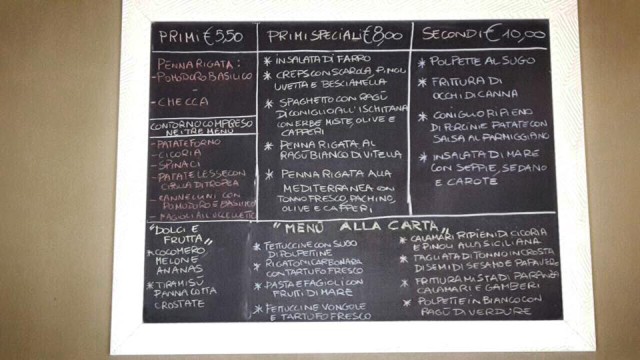 PRIMI €5,50
PENNA RIGATA:
- POMODORO BASILICO
-
- CHECCA
CONTORNO COMPRESO
NEI TRE MENÙ
- PATATE FORNO
- CICORIA
- SPINACI
- PATATE LESSE CON
CIPOLLA DI TROPEA
- CANNELLINI CON
POMODORO E BASILICO
- FAGIOLI ALL'UCCELLETTO
PRIMI SPECIALI €8,00
* INSALATA DI FARRO
* CREPS CON SCAROLA, PINOLI
UVETTA E BESCIAMELLA
* SPAGHETTO CON RAGÙ
DI CONIGLIO ALL'ISCHITANA
CON ERBE MISTE, OLIVE E
CAPPERI
* PENNA RIGATA AL
RAGÙ BIANCO DI VITELLA
* PENNA RIGATA ALLA
MEDITERRANEA CON
TONNO FRESCO, PACHINO,
OLIVE E CAPPERI
SECONDI €10,00
* POLPETTE AL SUGO
* FRITTURA DI
OCCHI DI CANNA
* CONIGLIO RIPIENO
DI PORCINI E PATATE CON
SALSA AL PARMIGGIANO
* INSALATA DI MARE
CON SEPPIE, SEDANO
E CAROTE
"DOLCI E
FRUTTA"
* COCOMERO
MELONE
ANANAS
* TIRAMISU
PANNA COTTA
CROSTATE
"MENÙ ALLA CARTA"
* FETTUCCINE CON SUGO
DI POLPETTINE
* RIGATONI CARBONARA
CON TARTUFO FRESCO
* PASTA E FAGIOLI CON
FRUTTI DI MARE
* FETTUCCINE VONGOLE
E TARTUFO FRESCO
* CALAMARI RIPIENI DI CICORIA
E PINOLI ALLA SICILIANA
* TAGLIATA DI TONNO IN CROSTA
DI SEMI DI SESAMO E PAPAVERO
* FRITTURA MISTA DI PARANZA
CALAMARI E GAMBERI
* POLPETTE IN BIANCO CON
RAGÙ DI VERDURE